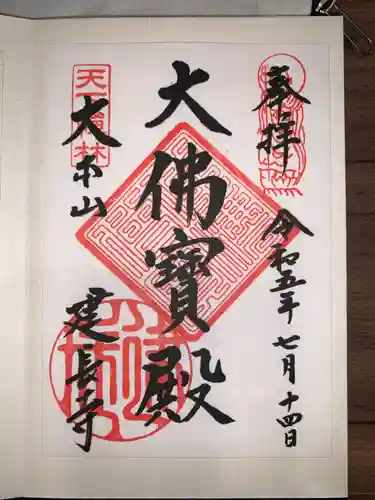 奉拝
令和五年 七月十四日
大佛寶殿
天下禅林
大本山
建長寺